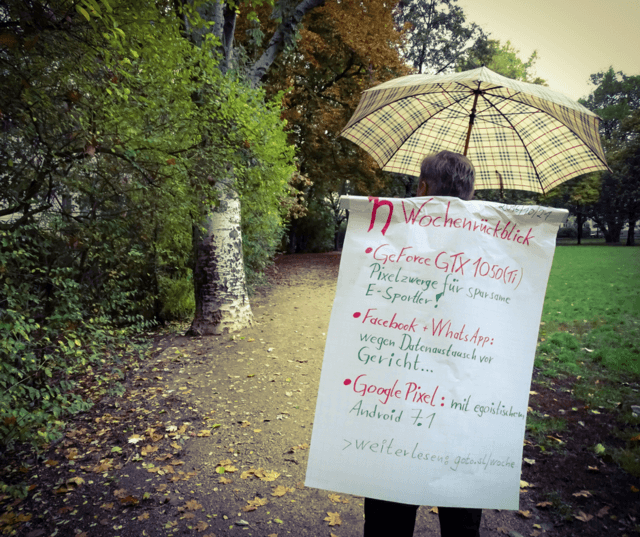 n Wochenrückblick
• GeForce GTX 1050(Ti)
Pixelzwerge für sparsame
E-Sportler!
• Facebook + WhatsApp:
wegen Datenaustausch vor
Gericht...
• Google Pixel: mit egoistischem
Android 7.1
>weiterlesen: